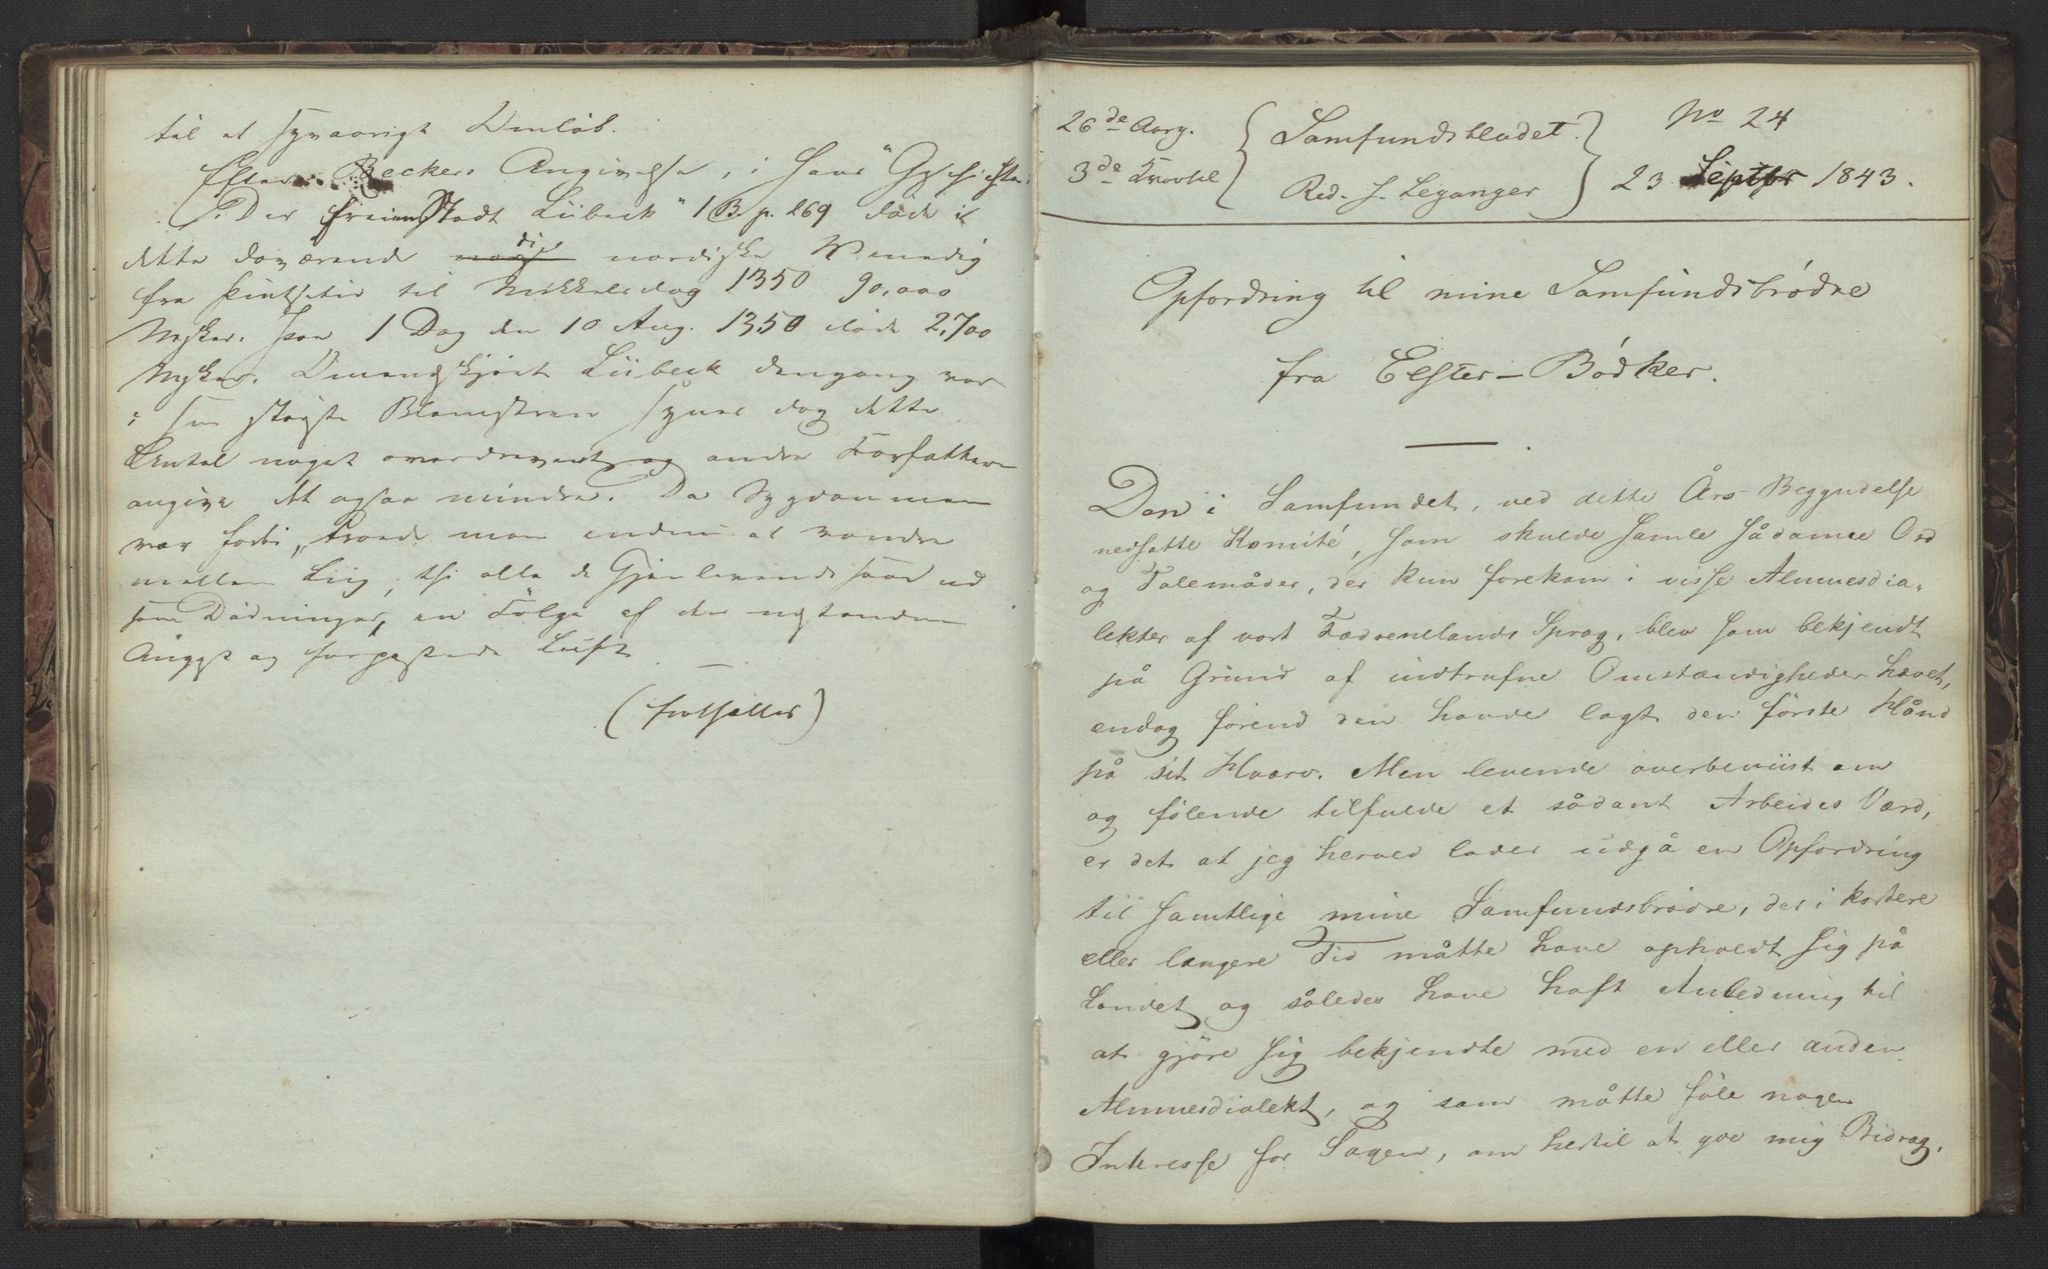 til et syvaarigt Omløb.
Efter Beckers Angivelse, i hans "Geschichte
Der freien Stadt Lübeck" 1 B. p. 269 døde i
dette daværende nordiske Venedig
fra Pintsetid til Mikkelsdag 1350 90,000
Msker. Paa 1 Dag den 10 Aug. 1350 døde 2,700
Msker. Omendskjøndt Lübeck dengang var
i sin største Blomstren synes dog dette
Antal noget overdrevent og andre Forfattere
angive det ogsaa mindre. Da Sygdommen
var forbi, troede man endnu at vandre
mellem Liig, thi alle de Gjenlevende saae ud
som Dødninger, en Følge af den udstandne
Angst og forpestede Luft
(fortsættes)
26de Aarg. Samfundsbladet. No 24
3de Kvartal Red. J. Leganger 23 Septbr 1843.
Opfordring til mine Samfundsbrødre
fra Elster-Bödker.
Den i Samfundet, ved dette Års Begyndelse
nedsatte Komité, som skulde samle sådanne Ord
og Talemåder, der kun forekom i visse Almuesdia-
lekter af vort Fædrenelands Sprog, blev som bekjendt
på Grund af indtrufne Omstændigheder hævet,
endog förend den havde lagt den förste Hånd
på sit Hværv. Men levende overbeviist om
og fölende tilfulde et sådant Arbeides Værd,
er det at jeg herved lader udgå en Opfordring
til samtlige mine Samfundsbrødre, der i kortere
eller længere Tid måtte have opholdt sig på
Landet og således have haft Anledning til
at gjöre sig bekjendte med en eller anden
Almuesdialekt, og som måtte föle nogen
Interesse for Sagen, om hertil at give mig Bidrag.